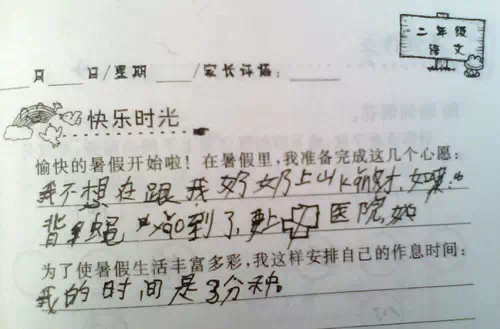 二年级
语文
月 日/星期 /家长评语：
快乐时光
愉快的暑假开始啦！在暑假里，我准备完成这几个心愿：
我不想在跟我奶奶上山 如果
背 到了, 医院
为了使暑假生活丰富多彩，我这样安排自己的作息时间：
我的时间是3分种。